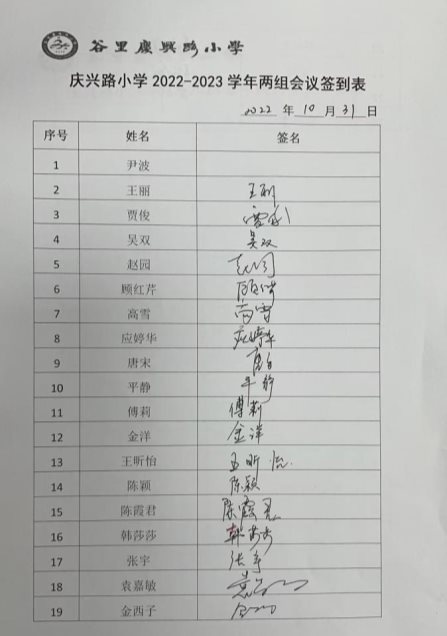 谷里庆兴路小学
庆兴路小学 2022-2023 学年两组会议签到表
2022 年 10 月 31 日
序号 姓名 签名
1 尹波
2 王丽 王丽
3 贾俊
4 吴双 吴双
5 赵园 赵园
6 顾红芹
7 高雪 高雪
8 应婷华 应婷华
9 唐宋
10 平静 平静
11 傅莉 傅莉
12 金洋 金洋
13 王昕怡 王昕怡
14 陈颖 陈颖
15 陈霞君 陈霞君
16 韩莎莎 韩莎莎
17 张宇 张宇
18 袁嘉敏
19 金西子